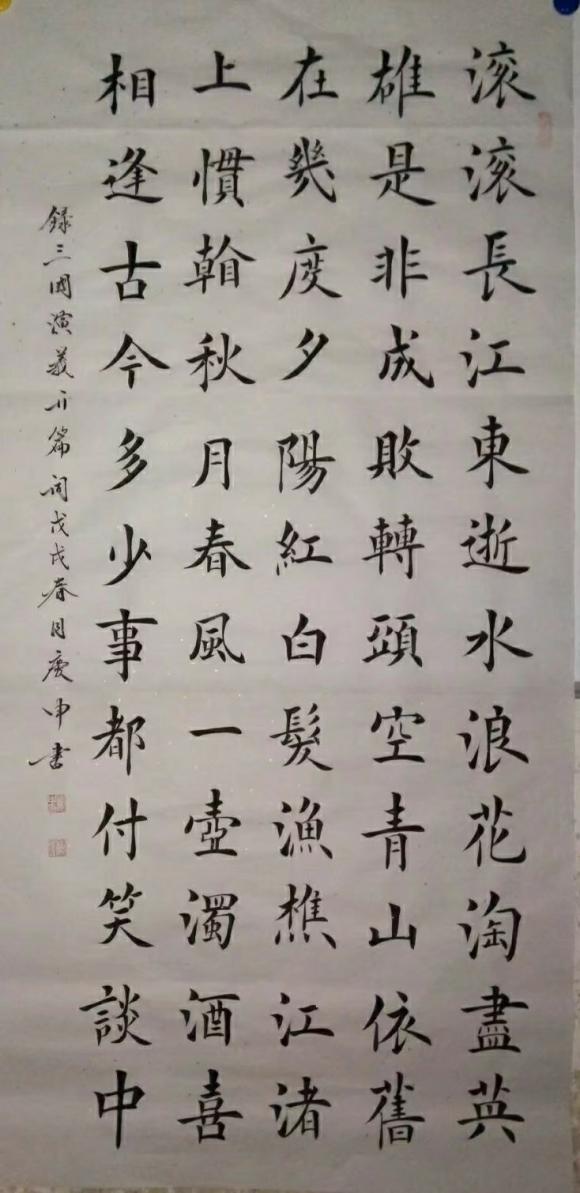 滚滚長江東逝水浪花淘盡英
雄是非成敗轉頭空青山依舊
在幾度夕陽紅白髮漁樵江渚
上慣看秋月春風一壺濁酒喜
相逢古今多少事都付笑談中
録三國演義开篇词戊戌春月庚申书